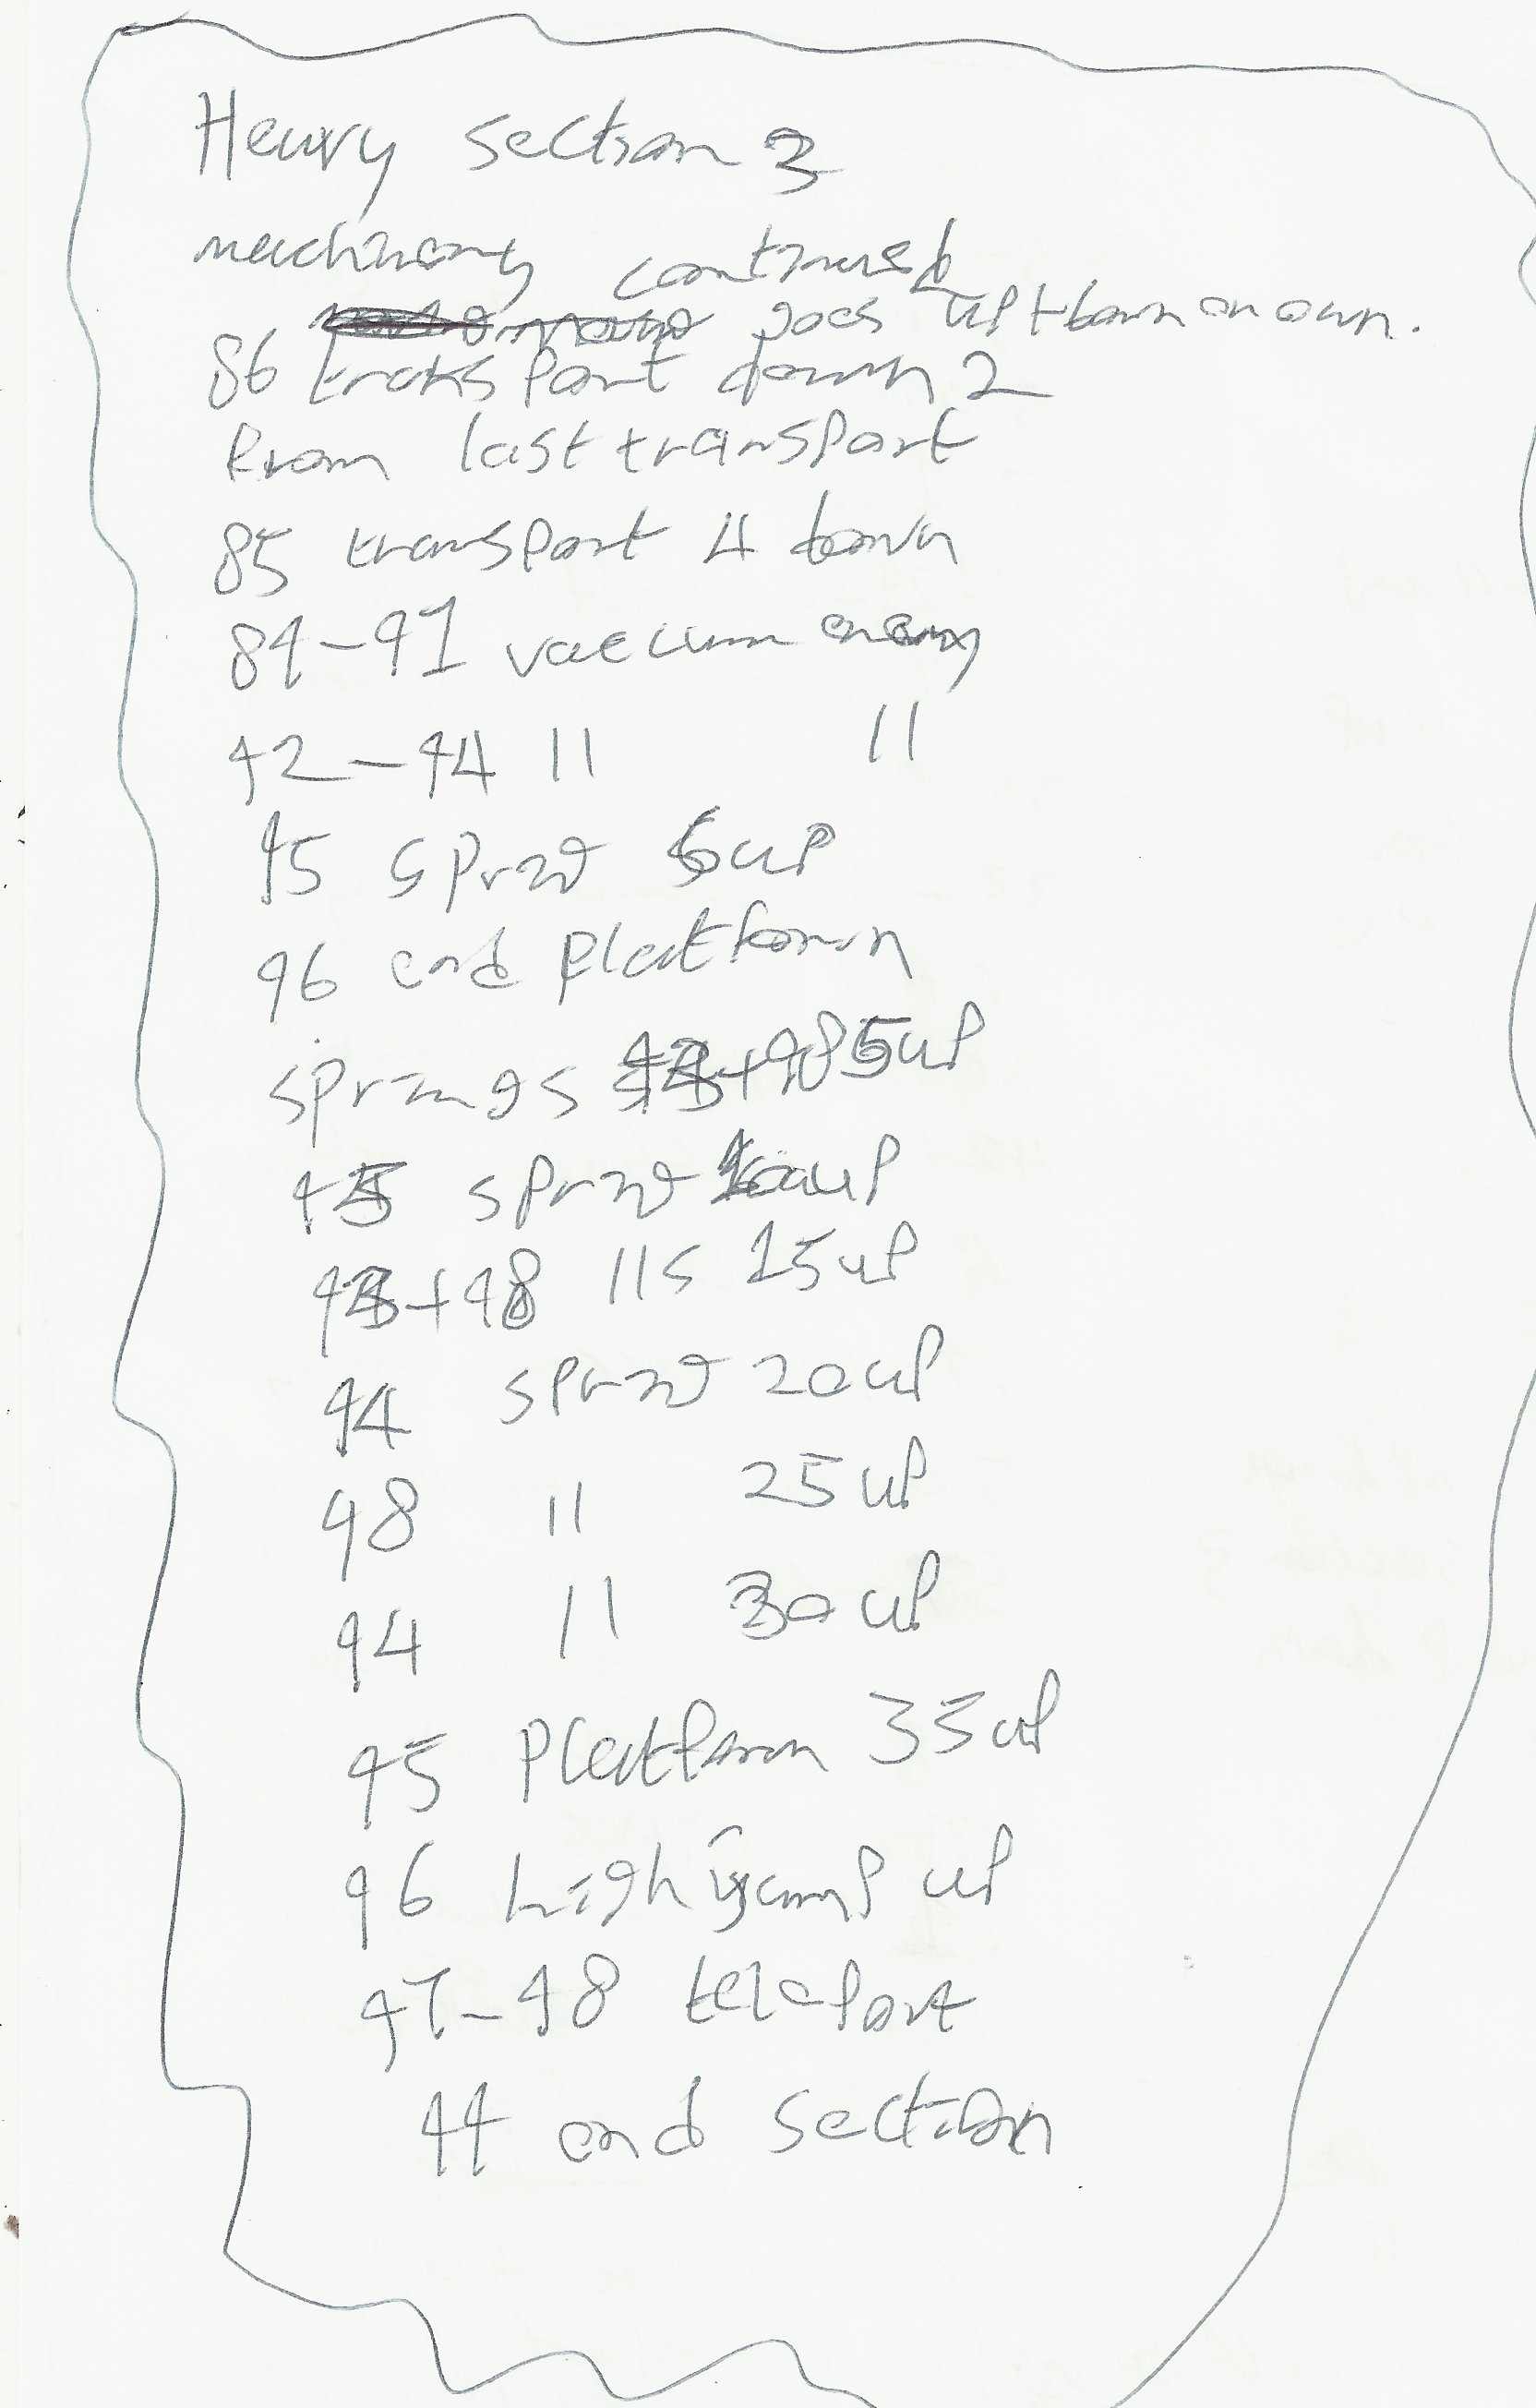 Heavy section 3
machinery continued
goes up + down on own.
86 transport down 2
from last transport
85 transport 4 down
89-91 vacuum enemy
92-94 11 11
95 spring 5 up
96 end platform
springs + 98 5 up
95 spring 10 up
+ 98 11s 15 up
94 spring 20 up
98 11 25 up
94 11 30 up
95 platform 35 up
96 high jump up
97-98 teleport
99 end section